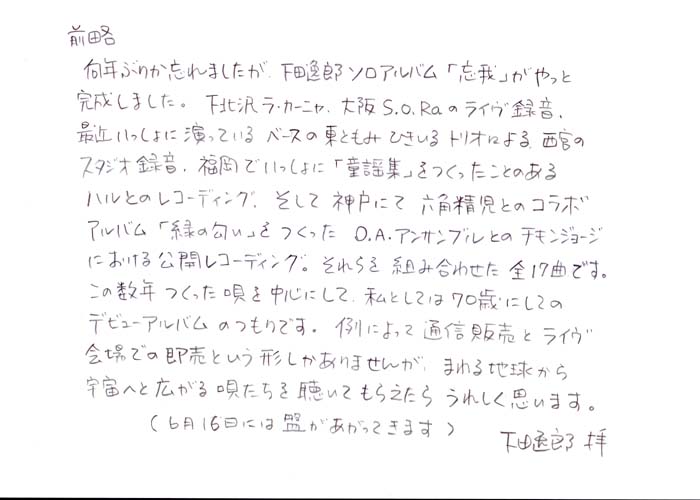 前略
何年ぶりか忘れましたが、下田逸郎ソロアルバム「忘我」がやっと
完成しました。下北沢ラ・カーニャ、大阪S.O.Raのライヴ録音、
最近いっしょに演っているベースの東ともみひきいるトリオによる西宮の
スタジオ録音、福岡でいっしょに「童謡集」をつくったことのある
ハルとのレコーディング、そして神戸にて六角精児とのコラボ
アルバム「緑の匂い」をつくったO.A.アンサンブルとのチキンジョージ
における公開レコーディング。それらを組み合わせた全17曲です。
この数年つくった唄を中心にして、私としては70歳にしての
デビューアルバムのつもりです。例によって通信販売とライヴ
会場での即売という形しかありませんが、まわる地球から
宇宙へと広がる唄たちを聴いてもらえたらうれしく思います。
(6月16日には盤があがってきます)
下田逸郎 拝